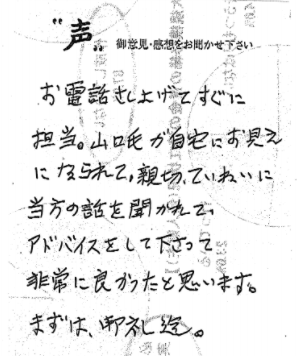 "声"
御意見・感想をお聞かせ下さい
お電話さし上げてすぐに
担当。山口氏が自宅にお見え
になられて。親切、ていねいに
当方の話を聞かれて、
アドバイスをして下さって
非常に良かったと思います。
まずは、御礼迄。